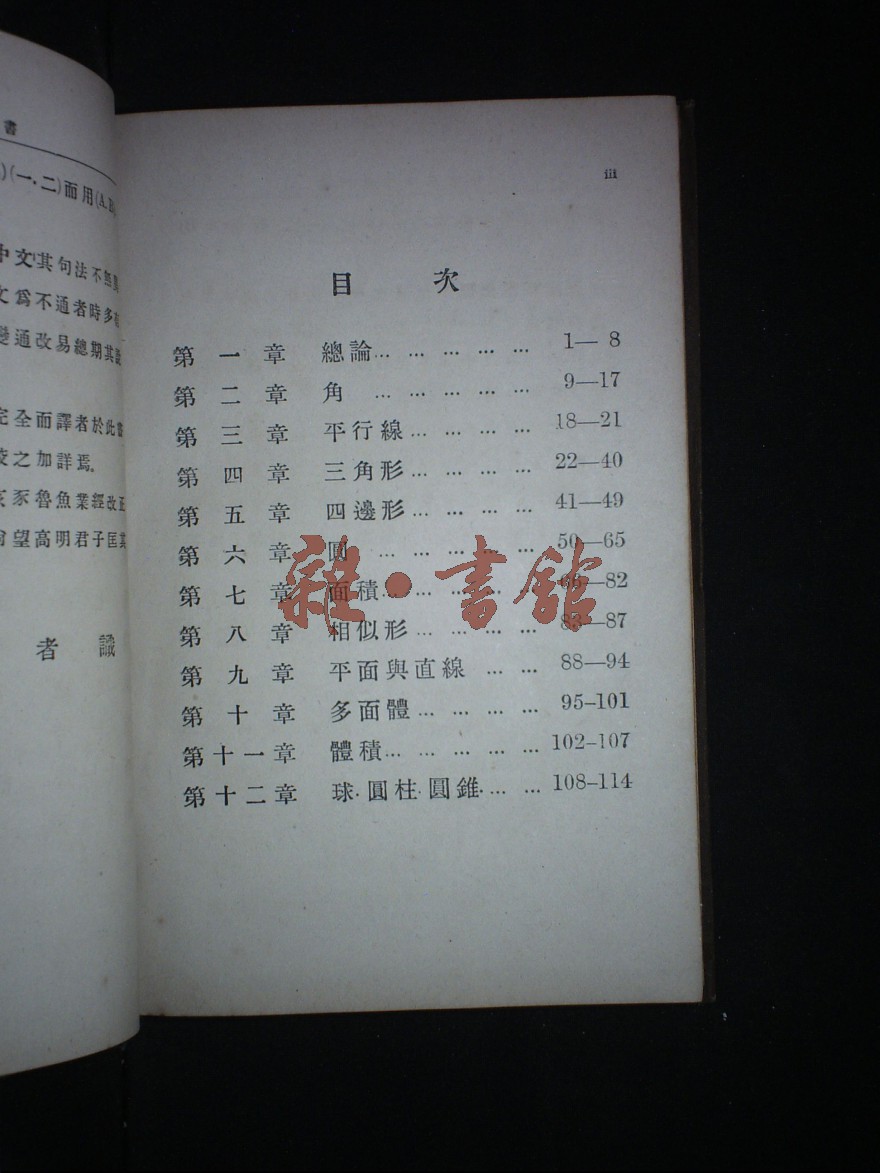 書
)(一.二)而用(A.B
中文其句法不無
文爲不通者時多
變通改易總期其
完全而譯者於此書
校之加詳焉。
亥豕魯魚業經改正
尙望高明君子匡其
者 識
iii
目 次
第一章 總論… … … … … 1— 8
第二章 角 … … … … 9—17
第三章 平行線… … … … 18—21
第四章 三角形… … … … 22—40
第五章 四邊形… … … … 41—49
第六章 圓 … … … … … 50—65
第七章 面積… … … … … 66—82
第八章 相似形… … … … 83—87
第九章 平面與直線 … … 88—94
第十章 多面體… … … … 95–101
第十一章 體積… … … … … 102–107
第十二章 球.圓柱.圓錐.… … 108–114
雜·書館